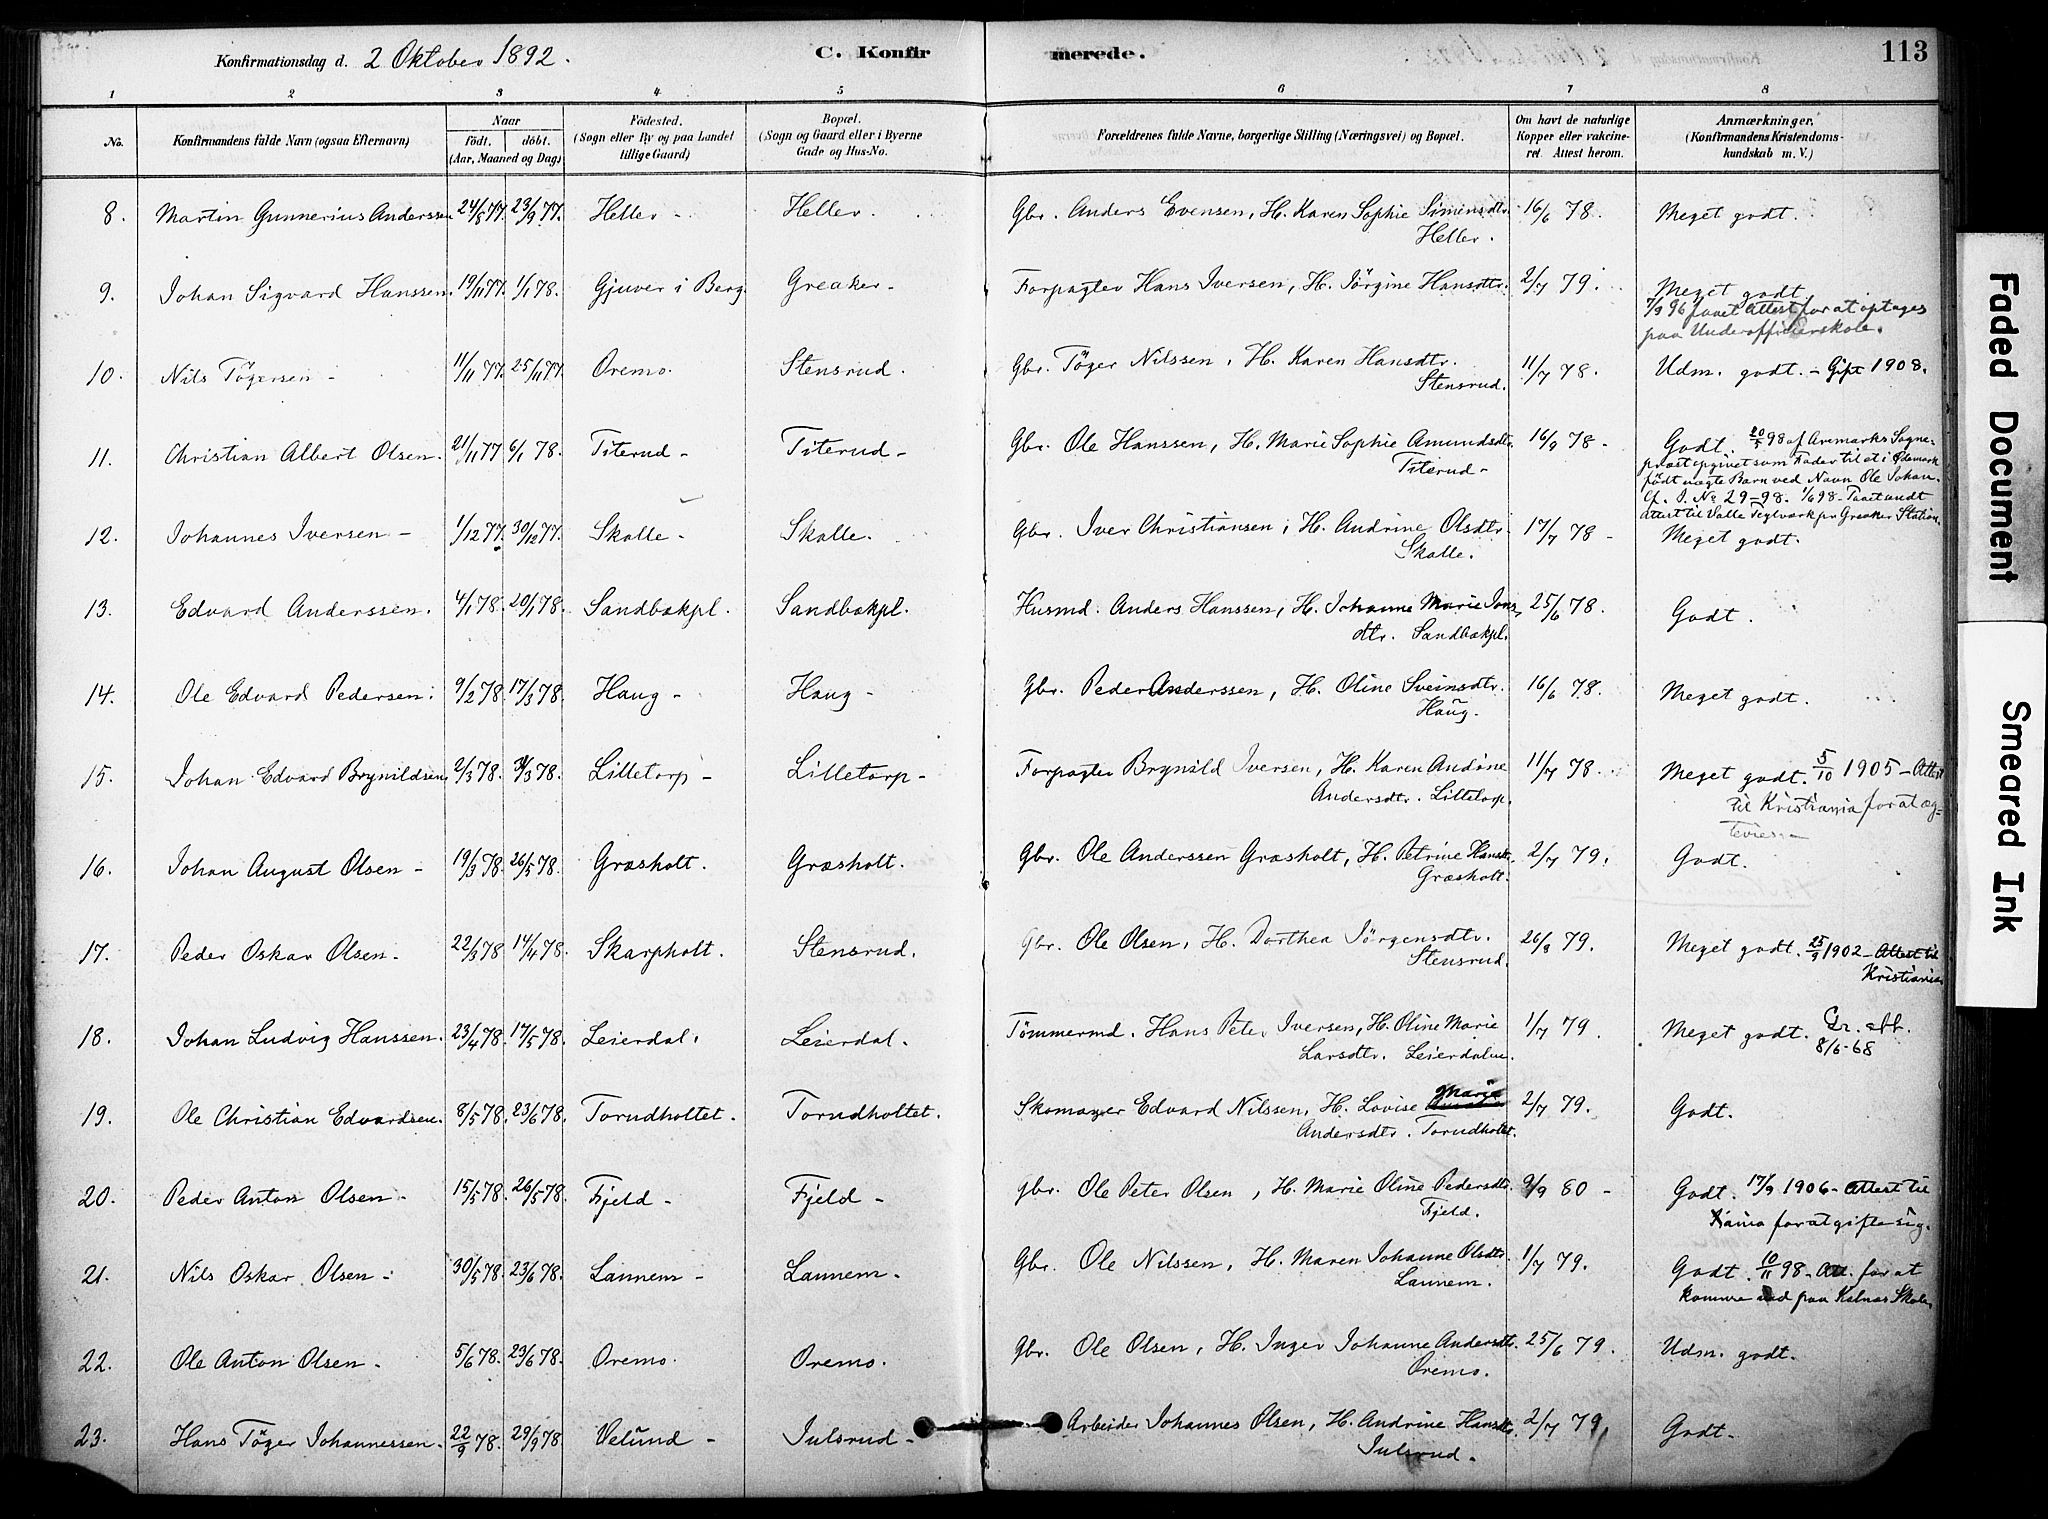 Konfirmationsdag d. 2 Oktober 1892. C. Konfirmerede. 113
1 2 3 4 5 6 7 8
No. Konfirmandens fulde Navn (ogsaa Efternavn) Naar født. døbt. (Aar, Maaned og Dag) Fødested. (Sogn eller By og paa Landet tillige Gaard) Bopæl. (Sogn og Gaard eller i Byerne Gade og Hus-No. Forældrenes fulde Navne, borgerlige Stilling (Næringsvei) og Bopæl. Om havt de naturlige Kopper eller vakcineret. Attest herom. Anmærkninger, (Konfirmandens Kristendomskundskab m. V.)
8. Martin Gunnerius Anderssen 24/8 77. 23/9 77. Heller - Heller. Gbr. Anders Evensen, H. Karen Sophie Simensdtr. 16/6 78. Meget godt.
Heller.
9. Johan Sigvard Hanssen. 19/11 77. 1/1 78. Gjuver i Berg Greaker - Forpagter Hans Iversen, H. Jörgine Hansdtr. 2/7 79. Meget godt
7/9 96 faaet Attest for at optages
paa Underofficierskole.
10. Nils Tögersen - 11/11 77. 25/11 77. Oremo. Stensrud. Gbr. Töger Nilssen, H. Karen Hansdtr. 11/7 78. Udm. godt. - Gift 1908.
Stensrud.
11. Christian Albert Olsen. 21/11 77 6/1 78. Titerud - Titerud - Gbr. Ole Hanssen, H. Marie Sophie Amundsdtr. 16/9 78 - Godt. 20/5 98 af Aremarks Sogne-
Titerud - præst opgivet som Fader til et i Ødemark
født uægte Barn ved Navn Ole Johan.
Cf. J. No 29-98. 1/6 98 -
Attest til Valle Teglværk pr Greaker Station
12. Johannes Iversen - 1/12 77. 30/12 77. Skolle. Skolle. Gbr. Iver Christiansen, H. Andrine Olsdtr. 17/7 78 - Meget godt.
Skolle.
13. Edvard Anderssen. 4/1 78. 20/1 78. Sandbækpl. Sandbækpl. Husmd. Anders Hanssen, H. Johanne Marie Jons 25/6 78. Godt.
dtr. Sandbækpl.
14. Ole Edvard Pedersen. 9/2 78. 17/3 78. Haug - Haug - Gbr. Peder Anderssen, H. Oline Sveinsdtr. 16/6 78. Meget godt.
Haug.
15. Johan Edvard Brynildsen 2/3 78. 31/3 78. Lilletorp - Lilletorp - Forpagter Brynild Iversen, H. Karen Andine 11/7 78. Meget godt. 5/10 1905 - Attest
Andersdtr. Lilletorp. til Kristiania for at æg-
tevies. -
16. Johan August Olsen - 19/3 78. 26/5 78. Græsholt. Græsholt. Gbr. Ole Anderssen Græsholt, H. Petrine Hansdtr. 2/7 79. Godt.
Græsholt.
17. Peder Oskar Olsen - 22/3 78. 14/4 78. Skarpholt. Stensrud. Gbr. Ole Olsen, H. Dorthea Jörgensdtr. 26/8 79. Meget godt. 25/9 1902 - Attest til
Stensrud. Kristiania
18. Johan Ludvig Hanssen. 23/4 78. 17/5 78. Leierdal. Leierdal. Tömmermd. Hans Peter Iversen, H. Oline Marie 1/7 79. Meget godt. Gr. att.
Larsdtr. Leierdalen. 8/6-68
19. Ole Christian Edvardsen. 8/5 78. 23/6 78. Torudholtet. Torudholtet. Skomager Edvard Nilssen, H. Lovise Marie 2/7 79. Godt.
Andersdtr. Torudholtet.
20. Peder Anton Olsen - 15/5 78. 26/5 78. Fjeld - Fjeld - Gbr. Ole Peter Olsen, H. Marie Oline Pedersdtr. 9/9 80 - Godt. 17/9 1906 - Attest til
Fjeld. Kania for at gifte sig.
21. Nils Oskar Olsen - 30/5 78. 23/6 78. Lannem - Lannem - Gbr. Ole Nilssen, H. Maren Johanne Olsdtr. 1/7 79. Godt. 10/11 98 - Att. for at
Lannem. komme ind paa Kalnæs Skole
22. Ole Anton Olsen - 5/6 78. 23/6 78. Oremo. Oremo. Gbr. Ole Olsen, H. Inger Johanne Andersdtr. 25/6 79. Udm. godt.
Oremo.
23. Hans Töger Johannessen. 22/9 78. 29/9 78 Velund - Julsrud - Arbeider Johannes Olsen, H. Andrine Hansdtr. 2/7 79, Godt.
Julsrud.
Faded Document
Smeared Ink